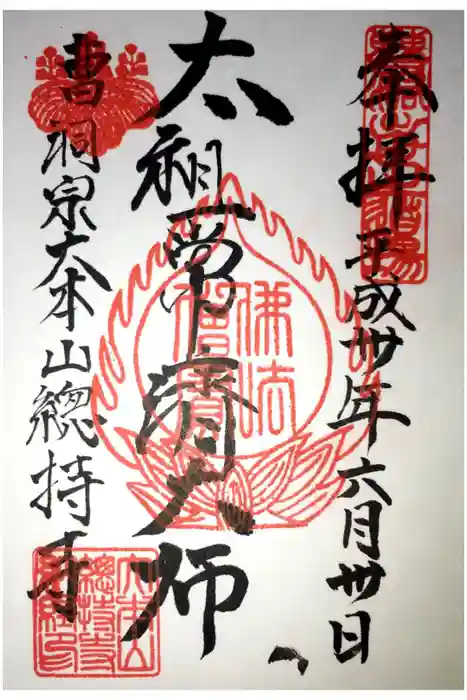 奉拝
平成卅年六月卅日
太祖常済大師
曹洞宗大本山總持寺
佛法僧寳
大本山總持寺